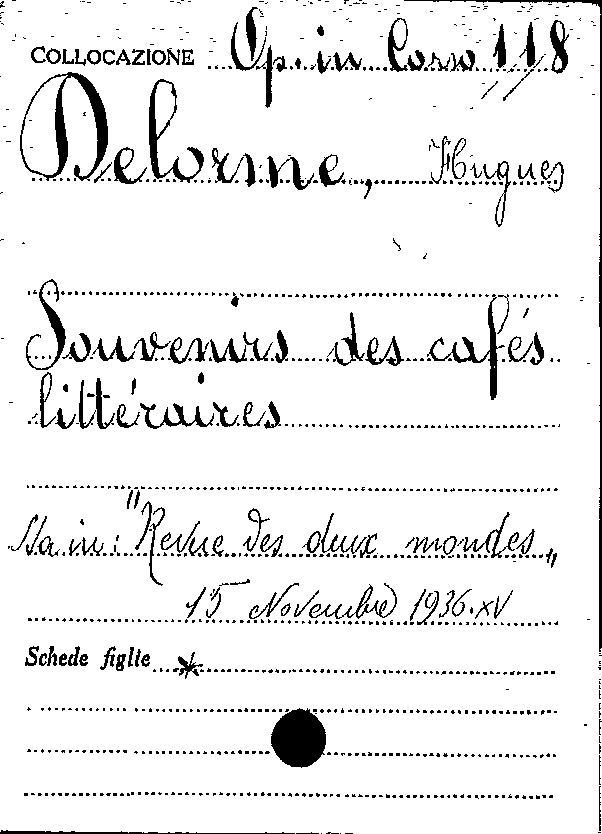 COLLOCAZIONE Op. in Corso 118
Delorme, Hugues
Souvenirs des cafés
littéraires
Sta in: "Revue des deux mondes"
15 Novembre 1936.XV
Schede figlie *